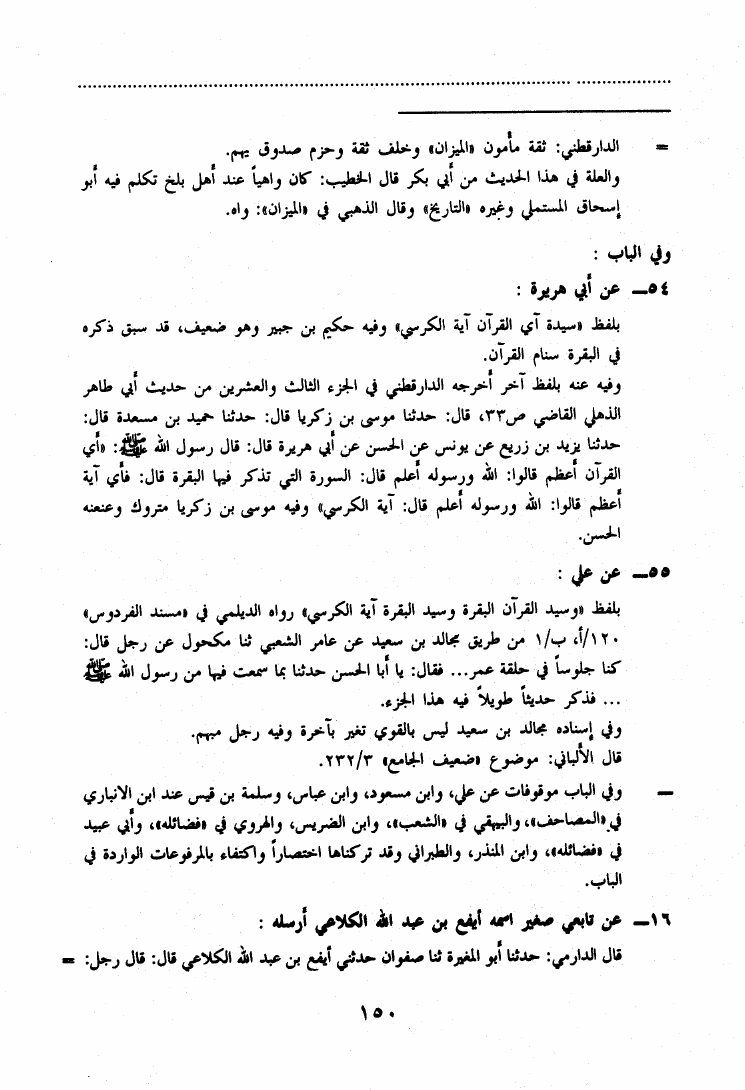 = الدارقطني: ثقة مأمون «الميزان» وخلف ثقة وحزم صدوق يهم.
والعلة في هذا الحديث من أبي بكر قال الخطيب: كان واهياً عند أهل بلخ تكلم فيه أبو
إسحاق المستملي وغيره «التاريخ» وقال الذهبي في «الميزان»: واه.
وفي الباب :
٥٤ــ عن أبي هريرة :
بلفظ «سيدة آي القرآن آية الكرسي» وفيه حكيم بن جبير وهو ضعيف، قد سبق ذكره
في البقرة سنام القرآن.
وفيه عنه بلفظ آخر أخرجه الدارقطني في الجزء الثالث والعشرين من حديث أبي طاهر
الذهلي القاضي ص٣٣، قال: حدثنا موسى بن زكريا قال: حدثنا حميد بن مسعدة قال:
حدثنا يزيد بن زريع عن يونس عن الحسن عن أبي هريرة قال: قال رسول الله ﷺ: «أي
القرآن أعظم قالوا: الله ورسوله أعلم قال: السورة التي تذكر فيها البقرة قال: فأي آية
أعظم قالوا: الله ورسوله أعلم قال: آية الكرسي» وفيه موسى بن زكريا متروك وعنعنه
الحسن.
٥٥ــ عن علي :
بلفظ «وسيد القرآن البقرة وسيد البقرة آية الكرسي» رواه الديلمي في «مسند الفردوس»
١٢٠/أ، ب/١ من طريق مجالد بن سعيد عن عامر الشعبي ثنا مكحول عن رجل قال:
كنا جلوساً في حلقة عمر... فقال: يا أبا الحسن حدثنا بما سمعت فيها من رسول الله ﷺ
... فذكر حديثاً طويلاً فيه هذا الجزء.
وفي إسناده مجالد بن سعيد ليس بالقوي تغير بآخرة وفيه رجل مبهم.
قال الألباني: موضوع «ضعيف الجامع» ٢٣٢/٣.
ــ وفي الباب موقوفات عن علي، وابن مسعود، وابن عباس، وسلمة بن قيس عند ابن الانباري
في «المصاحف»، والبيهقي في «الشعب»، وابن الضريس، والهروي في «فضائله»، وأبي عبيد
في «فضائله»، وابن المنذر، والطبراني وقد تركناها اختصاراً واكتفاء بالمرفوعات الواردة في
الباب.
١٦ــ عن تابعي صغير اسمه أيفع بن عبد الله الكلاعي أرسله :
قال الدارمي: حدثنا أبو المغيرة ثنا صفوان حدثني أيفع بن عبد الله الكلاعي قال: قال رجل: =
١٥٠